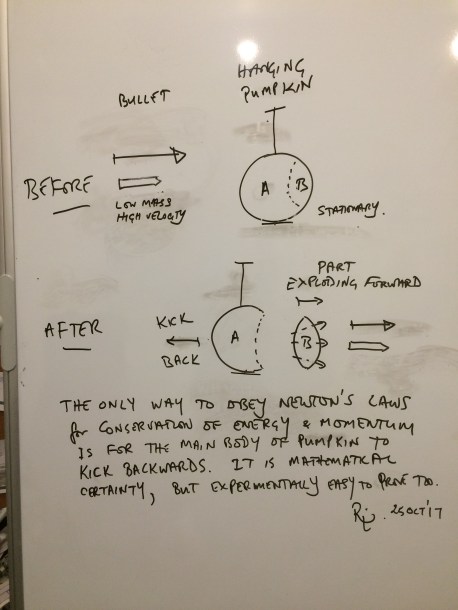 HANGING
PUMPKIN
BULLET
BEFORE
A
B
LOW MASS
HIGH VELOCITY
STATIONARY.
PART
EXPLODING FORWARD
AFTER
KICK
BACK
A
B
THE ONLY WAY TO OBEY NEWTON'S LAWS
for CONSERVATION OF ENERGY & MOMENTUM
IS FOR THE MAIN BODY OF PUMPKIN TO
KICK BACKWARDS. IT IS MATHEMATICAL
CERTAINTY, BUT EXPERIMENTALLY EASY TO PROVE TOO.
25 OCT '17